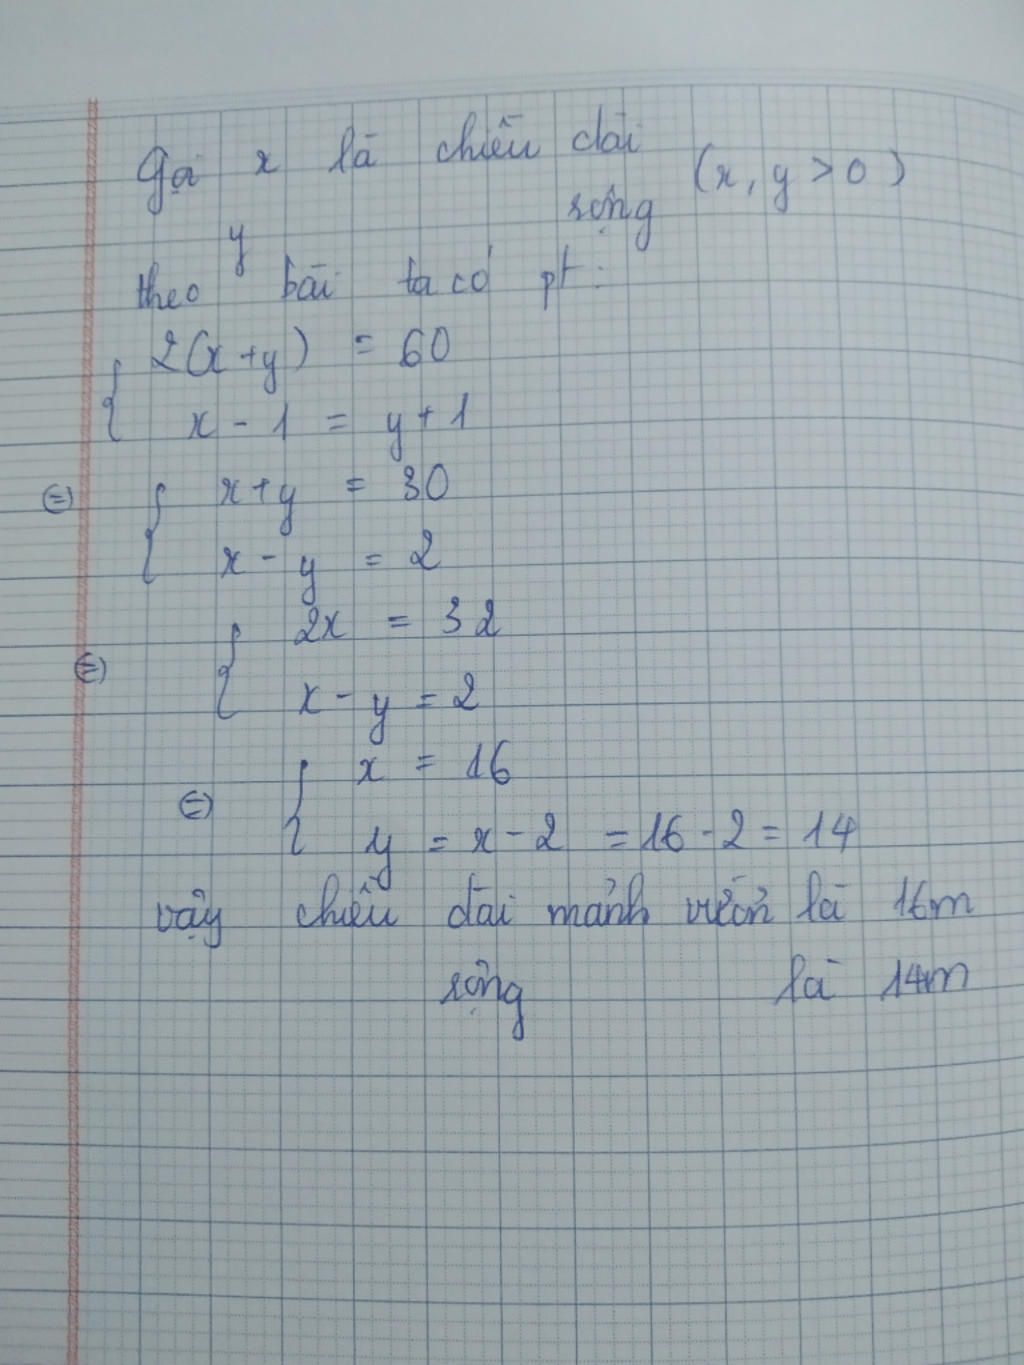 Gọi x là chiều dài
y rộng (x, y > 0)
theo bài ta có pt:
{ 2(x+y) = 60
x - 1 = y + 1
⇔ { x+y = 30
x - y = 2
⇔ { 2x = 32
x - y = 2
⇔ { x = 16
y = x - 2 = 16 - 2 = 14
vậy chiều dài mảnh vườn là 16m
rộng là 14m